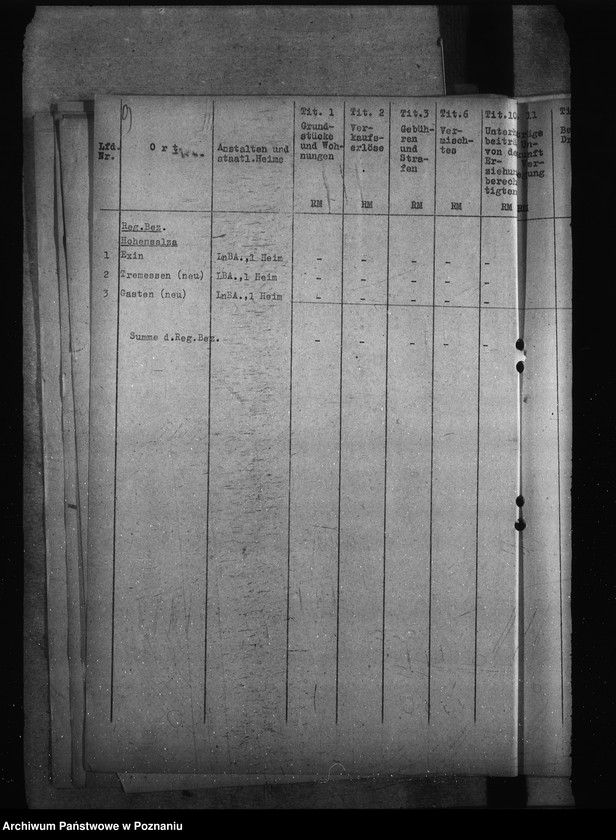 Lfd. Nr.
O r t
Anstalten und staatl.Heime
Tit. 1 Grund- stücke und Woh- nungen RM
Tit. 2 Ver- kaufs- erlöse RM
Tit.3 Gebüh- ren und Stra- fen RM
Tit.6 Ver- misch- tes RM
Tit.10 beiträ von de Er- ziehun berech tigten RM
11
Reg.Bez.
Hohensalza
1 Exin LnBA.,1 Heim - - - - -
2 Tremessen (neu) LBA.,1 Heim - - - - -
3 Gasten (neu) LnBA.,1 Heim - - - - -
Summe d.Reg.Bez. - - - - -
Archiwum Państwowe w Poznaniu